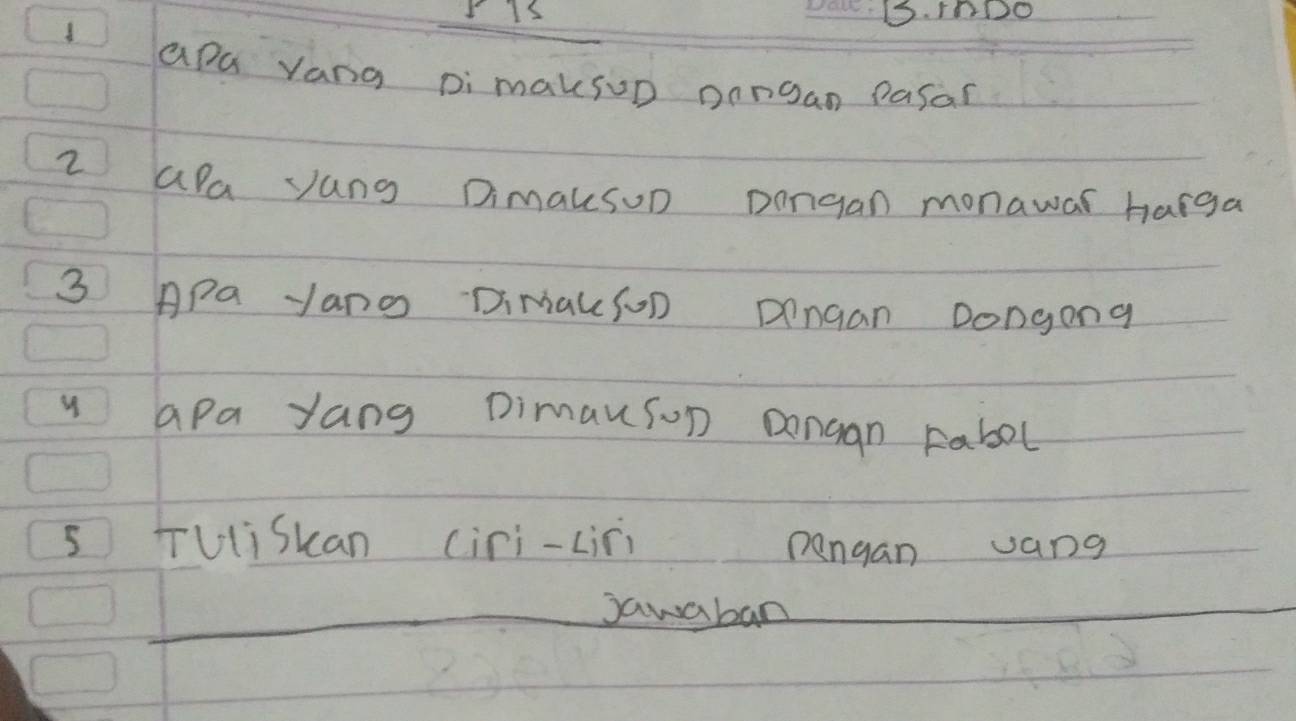 Date: B.INDO
1 apa yang Dimaksud Dengan Pasar
2 apa yang Dimaksud Dengan menawar Harga
3 Apa yang Dimaksud Dengan Dongeng
4 apa yang Dimaksud Dengan Fabel
5 Tuliskan ciri-ciri Dengan uang
Jawaban